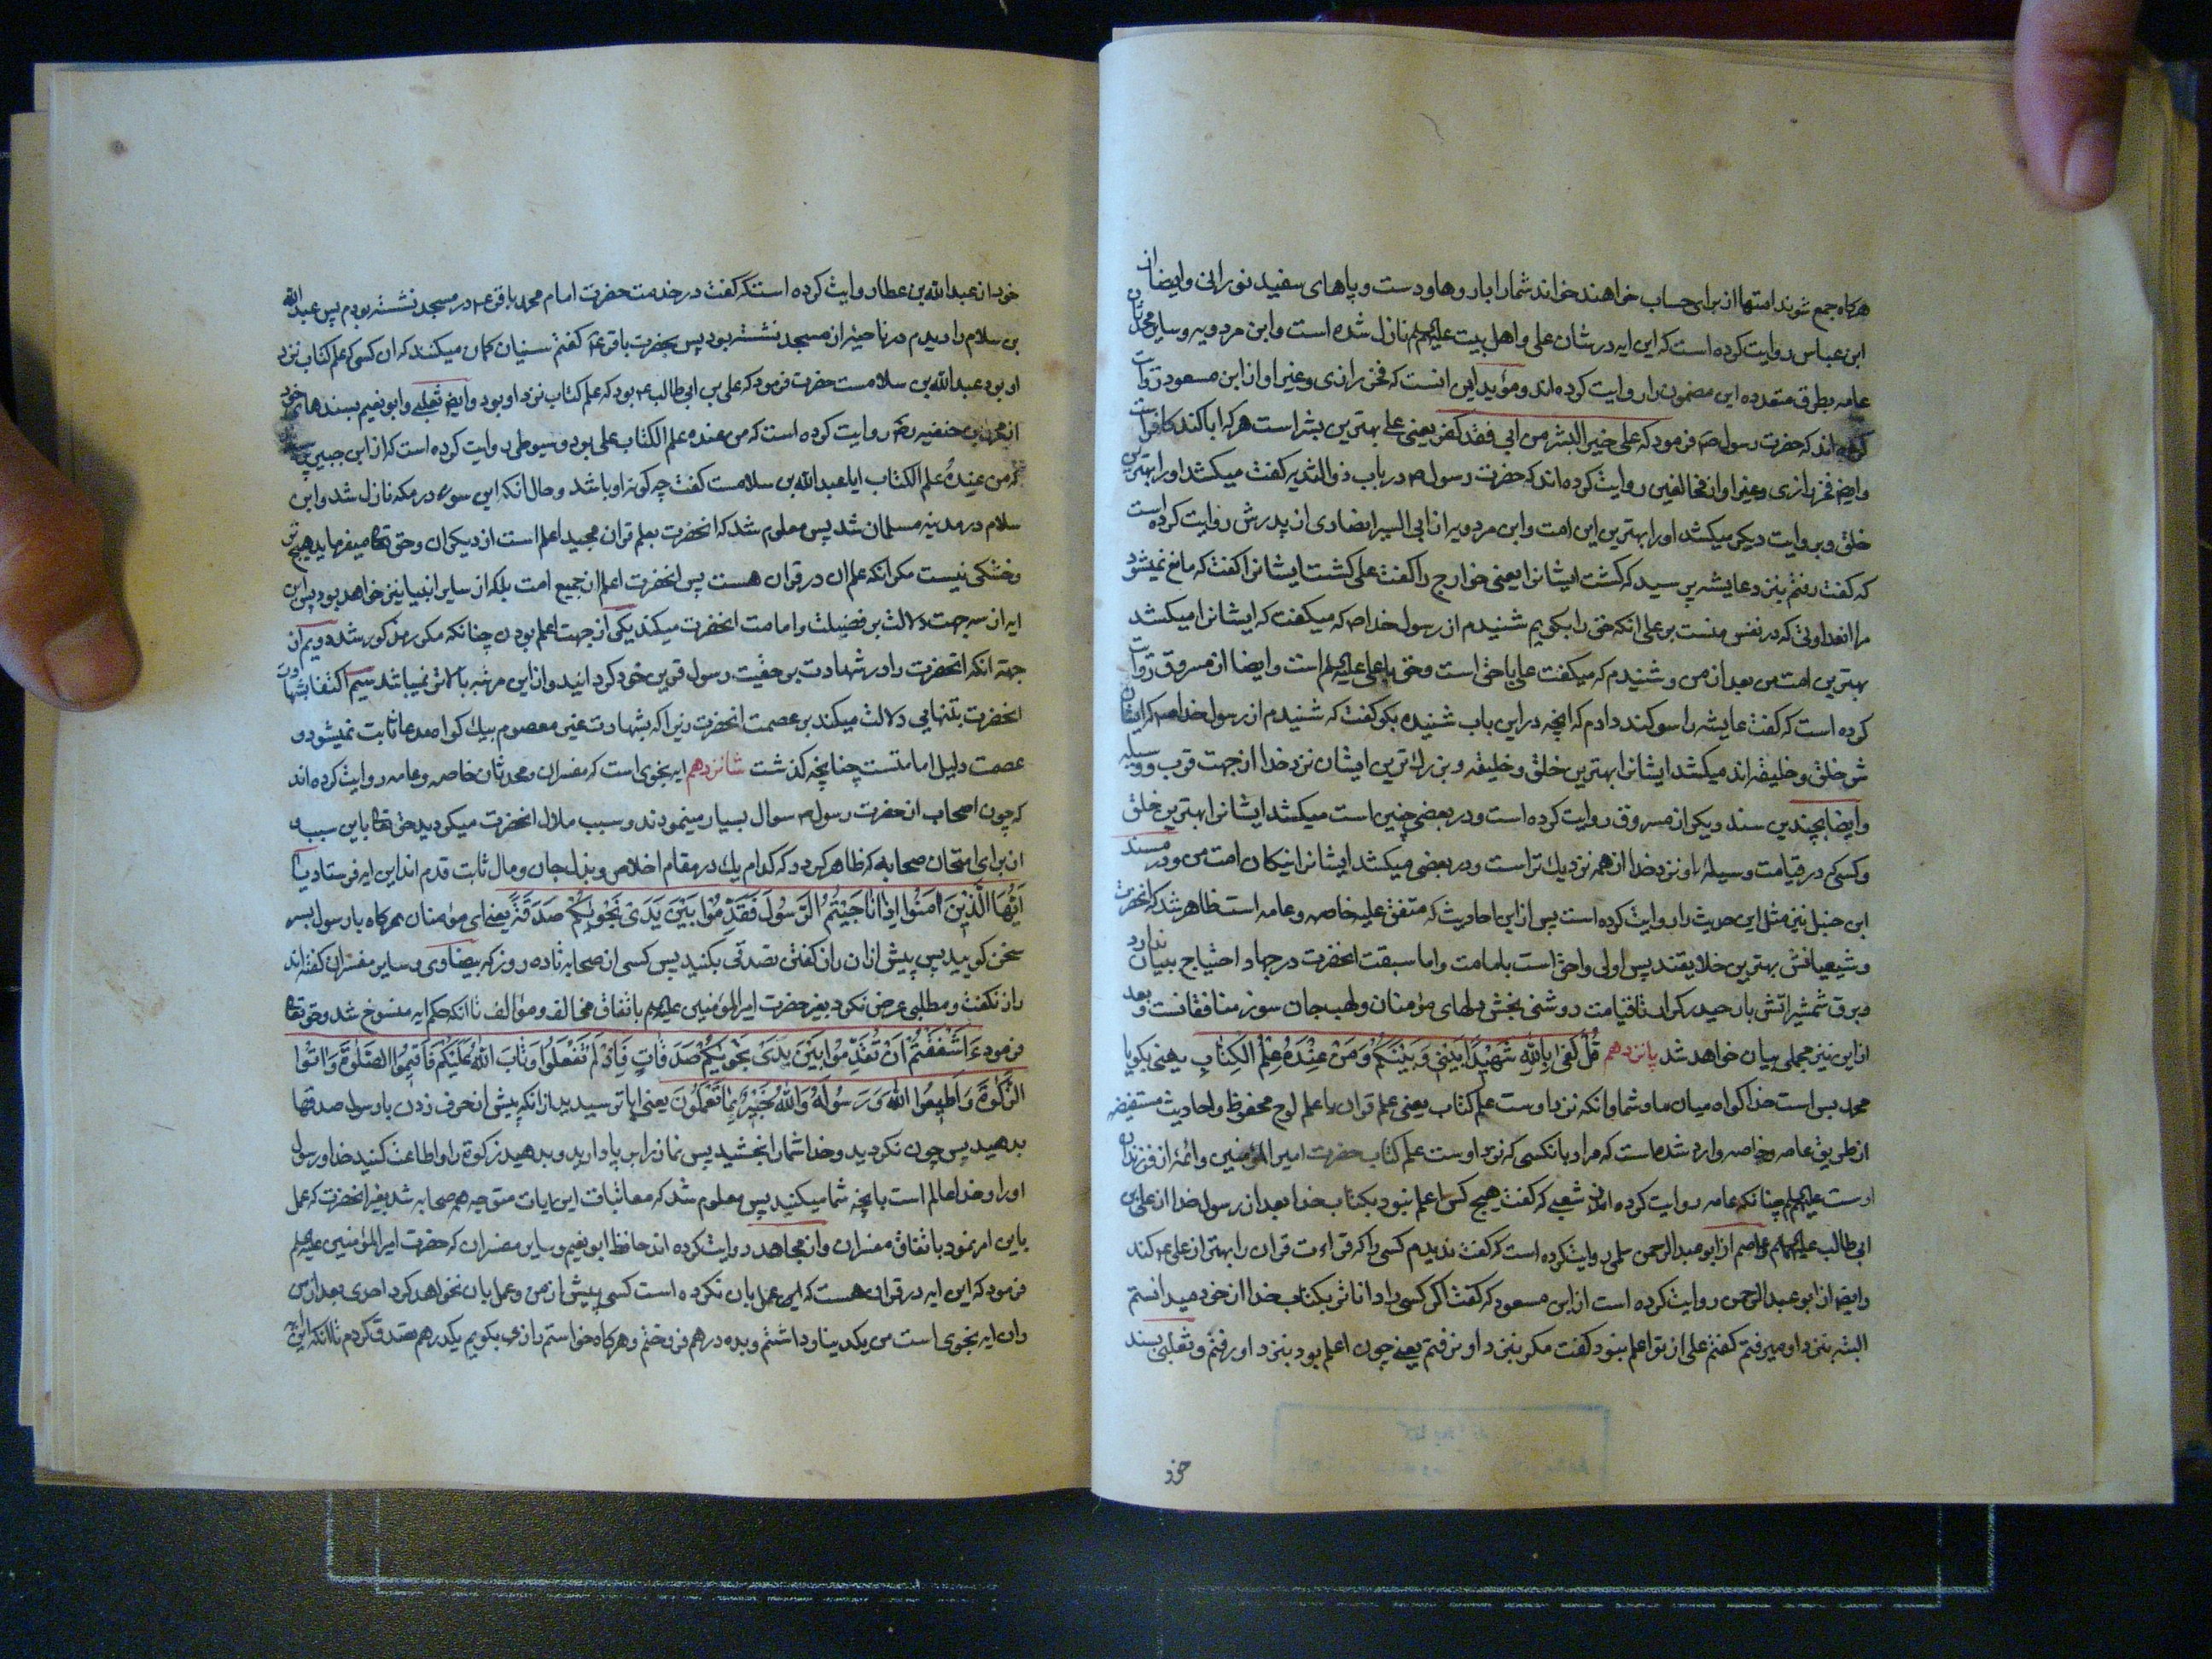 هرکاه جمع شوند امتها از برای حساب خواهند خواند شما را با روها و دست و پاهای سفید نورانی و ایضا از
ابن عباس روایت کرده است که این ایه در شان علی و اهل بیت علیهم نازل شده است و ابن مردویه و سایر محدثان
عامه بطرق متعدده این مضمون را روایت کرده اند و مؤید این انست که فخر رازی و غیر او از ابن مسعود روایت
کرده اند که حضرت رسول ص فرمود که علی خیر البشر من ابی فقد کفر یعنی علی بهترین بشر است هر که ابا کند کافر است
و ایضا فخر رازی و غیر او از مخالفین روایت کرده اند که حضرت رسول ص در باب ذوالثدیه کفت میکشد او را بهترین
خلق و بروایت دیکر میکشد او را بهترین این امت و ابن مردویه از ابی الیسر انصاری از پدرش روایت کرده است
که کفت رفتم بنزد عایشه پرسید که کشت ایشانرا یعنی خوارج را کفت علی کشت ایشانرا کفت که مانع نمیشود
مرا انعداوتی که در نفس منست بر علی انکه حق را بکویم شنیدم از رسول خدا ص که میکفت که ایشانرا میکشد
بهترین امت من بعد از من و شنیدم که میکفت علی با حق است و حق با علی علیه است و ایضا از مسروق روایت
کرده است که کفت عایشه را سوکند دادم که انچه در این باب شنیده بکو کفت که شنیدم از رسول خدا ص که ایشان
شر خلق و خلیفه اند میکشد ایشانرا بهترین خلق و خلیفه و بزرک ترین ایشان نزد خدا از جهت قرب و وسیله
و ایضا بچندین سند دیکر از مسروق روایت کرده است و در بعضی چنین است میکشد ایشانرا بهترین خلق
و کسی که در قیامت وسیلهٔ او نزد خدا از همه نزدیک تر است و در بعضی میکشد ایشانرا نیکان امت من و در مسند
ابن حنبل نیز مثل این حدیث را روایت کرده است پس از این احادیث که متفق علیه خاصه و عامه است ظاهر شد که انحضرت
و شیعیانش بهترین خلایقند پس اولی و احق است بامامت و اما سبقت انحضرت در جهاد احتیاج ببیان ندارد
و برق شمشیر اتش بار حیدر کرار تا قیامت روشنی بخش دلهای مؤمنان و لهب جان سوز منافقانست و بعد
از این نیز مجملی بیان خواهد شد پانزدهم قُلْ کَفَیٰ بِاللّٰهِ شَهِیْدًا بَیْنِی وَ بَیْنَکُمْ وَ مَنْ عِنْدَهُ عِلْمُ الْکِتَابِ یعنی بکو یا
محمد بس است خدا کواه میان ما و شما و انکه نزد اوست علم کتاب یعنی علم قران یا علم لوح محفوظ و احادیث مستفیضه
از طریق عامه و خاصه وارد شده است که مراد بانکسی که نزد اوست علم کتاب حضرت امیر المؤمنین و ائمه از فرزندان
اوست علیهم چنانکه عامه روایت کرده اند از شعبی که کفت هیچ کس اعلم نبود بکتاب خدا بعد از رسول خدا از علی بن
ابی طالب علیه و عاصم از ابو عبدالرحمن سلمی روایت کرده است که کفت ندیدم کسی را که قراءت قران را بهتر از علی ع کند
و ایضا از ابو عبدالرحمن روایت کرده است از ابن مسعود که کفت اکر کسی را داناتر بکتاب خدا از خود میدانستم
البته بنزد او میرفتم کفتم علی از تو اعلم نبود کفت مکر بنزد او نرفتم یعنی چون اعلم بود بنزد او رفتم و ثعلبی بسند
خود
خود از عبدالله بن عطا روایت کرده است که کفت در خدمت حضرت امام محمد باقر ع در مسجد نشسته بودم پس عبدالله
بن سلام را دیدم در ناحیه از مسجد نشسته بود پس بحضرت باقر ع کفتم سنیان کمان میکنند که ان کسی که علم کتاب نزد
او بود عبدالله بن سلامست حضرت فرمود که علی بن ابی طالب ع بود که علم کتاب نزد او بود و ایضا ثعلبی و ابو نعیم بسندهای خود
از محمد بن حنفیه رض روایت کرده است که من عنده علم الکتاب علی بود و سیوطی روایت کرده است که از ابن جبیر
که من عِندهُ علم الکتاب ایا عبدالله بن سلامست کفت چه کونه او باشد و حال انکه این سوره در مکه نازل شد و ابن
سلام در مدینه مسلمان شد پس معلوم شد که انحضرت بعلم قران مجید اعلم است از دیکران و حق تعالی میفرماید هیچ تر
و خشکی نیست مکر انکه علم ان در قران هست پس انحضرت اعلم از جمیع امت بلکه از سایر انبیا نیز خواهد بود پس این
ایه از سه جهت دلالت بر فضیلت و امامت انحضرت میکند یکی از جهت اعلم بودن چنانکه مکرر مذکور شد دویم از
جهة انکه انحضرت را در شهادت بر حقیت رسول قرین خود کردانید و از این مرتبه بالاتر نمیباشد سیم اکتفا بشهادت
انحضرت بتنهایی دلالت میکند بر عصمت انحضرت زیرا که بشهادت غیر معصوم بیک کواه مدعا ثابت نمیشود و
عصمت دلیل امامتست چنانچه کذشت شانزدهم ایه نجوی است که مفسران و محدثان خاصه و عامه روایت کرده اند
که چون اصحاب از حضرت رسول ص سوال بسیار مینمودند و سبب ملال انحضرت میکردید حق تعالی باین سبب
از برای امتحان صحابه که ظاهر کردد که کدام یک در مقام اخلاص و بذل جان و مال ثابت قدم اند این ایه فرستاد یٰا
اَیُّهَا الَّذِیْنَ اٰمَنُوْا اِذَا نَاجَیْتُمُ الرَّسُوْلَ فَقَدِّمُوْا بَیْنَ یَدَیْ نَجْوٰیکُمْ صَدَقَةً یعنی ای مؤمنان هرکاه با رسول بسر
سخن کویید پس پیش از ان راز کفتن تصدقی بکنید پس کسی از صحابه تا ده روز که بیضاوی و سایر مفسران کفته اند
راز نکفت و مطلبی عرض نکرد بغیر حضرت امیر المؤمنین علیه باتفاق مخالف و مؤالف تا انکه حکم ایه منسوخ شد و حق تعالی
فرمود ءَاَشْفَقْتُمْ اَنْ تُقَدِّمُوْا بَیْنَ یَدَیْ نَجْوٰیکُمْ صَدَقَاتٍ فَاِذْ لَمْ تَفْعَلُوْا وَ تَابَ اللّٰهُ عَلَیْکُمْ فَاَقِیْمُوا الصَّلوٰةَ وَ اٰتُوا
الزَّکوٰةَ وَ اَطِیْعُوا اللّٰهَ وَ رَسُوْلَهُ وَ اللّٰهُ خَبِیْرٌ بِمَا تَعْمَلُوْنَ یعنی ایا ترسیدید از انکه پیش از حرف زدن با رسول صدقها
بدهید پس چون نکردید و خدا شما را بخشید پس نماز را بر پا دارید و بدهید زکوة را و اطاعت کنید خدا و رسول
او را و خدا عالم است بانچه شما میکنید پس معلوم شد که معاتبات این ایات متوجه همه صحابه شد بغیر انحضرت که عمل
باین امر نمود باتفاق مفسران و از مجاهد روایت کرده اند حافظ ابو نعیم و سایر مفسران که حضرت امیر المؤمنین علیه
فرمود که این ایه در قران هست که عمل بان نکرده است کسی پیش از من و عمل بان نخواهد کرد احدی بعد از من
و ان ایه نجوی است من یکدینار داشتم و بده درهم فروختم و هرکاه خواستم رازی بکویم یکدرهم تصدق کردم تا انکه این ایه